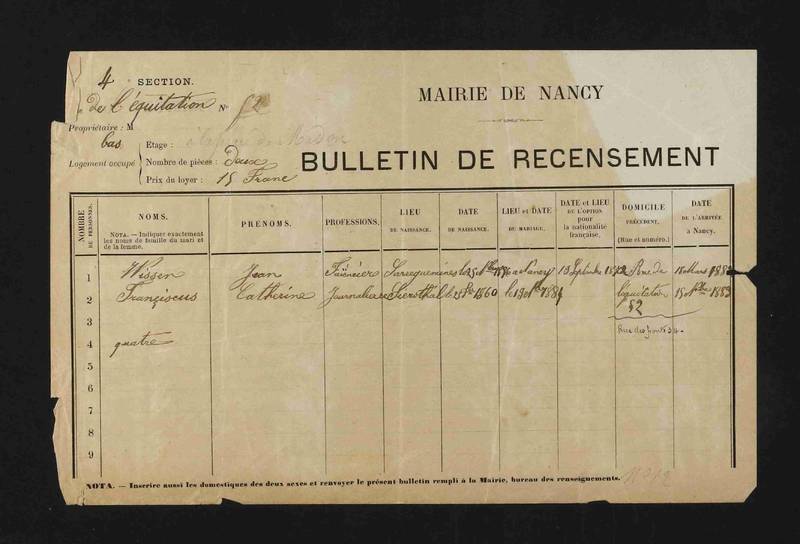 4 SECTION.
de l'équitation N° 52
MAIRIE DE NANCY
Propriétaire : M
bas
Logement occupé
Etage :
Nombre de pièces : Deux
Prix du loyer : 15 Franc
BULLETIN DE RECENSEMENT
NOMBRE DE PERSONNES.
NOMS.
NOTA. — Indiquer exactement les noms de famille du mari et de la femme.
PRÉNOMS.
PROFESSIONS.
LIEU DE NAISSANCE.
DATE DE NAISSANCE.
LIEU et DATE DU MARIAGE.
DATE et LIEU DE L'OPTION pour la nationalité française.
DOMICILE PRÉCÉDENT. (Rue et numéro.)
DATE DE L'ARRIVÉE à Nancy.
1 Wissen Jean Faïencier Sarreguemines le 25 1856 a Nancy 13 Septembre 1872 Rue de 18 Mars 1882
2 Françiscus Catherine Journaliere le 25 1860 le 19 1881 l'equitation 15 1883
3 52
Rue des Ponts 34
4 quatre
5
6
7
8
9
NOTA. — Inscrire aussi les domestiques des deux sexes et renvoyer le présent bulletin rempli à la Mairie, bureau des renseignements.